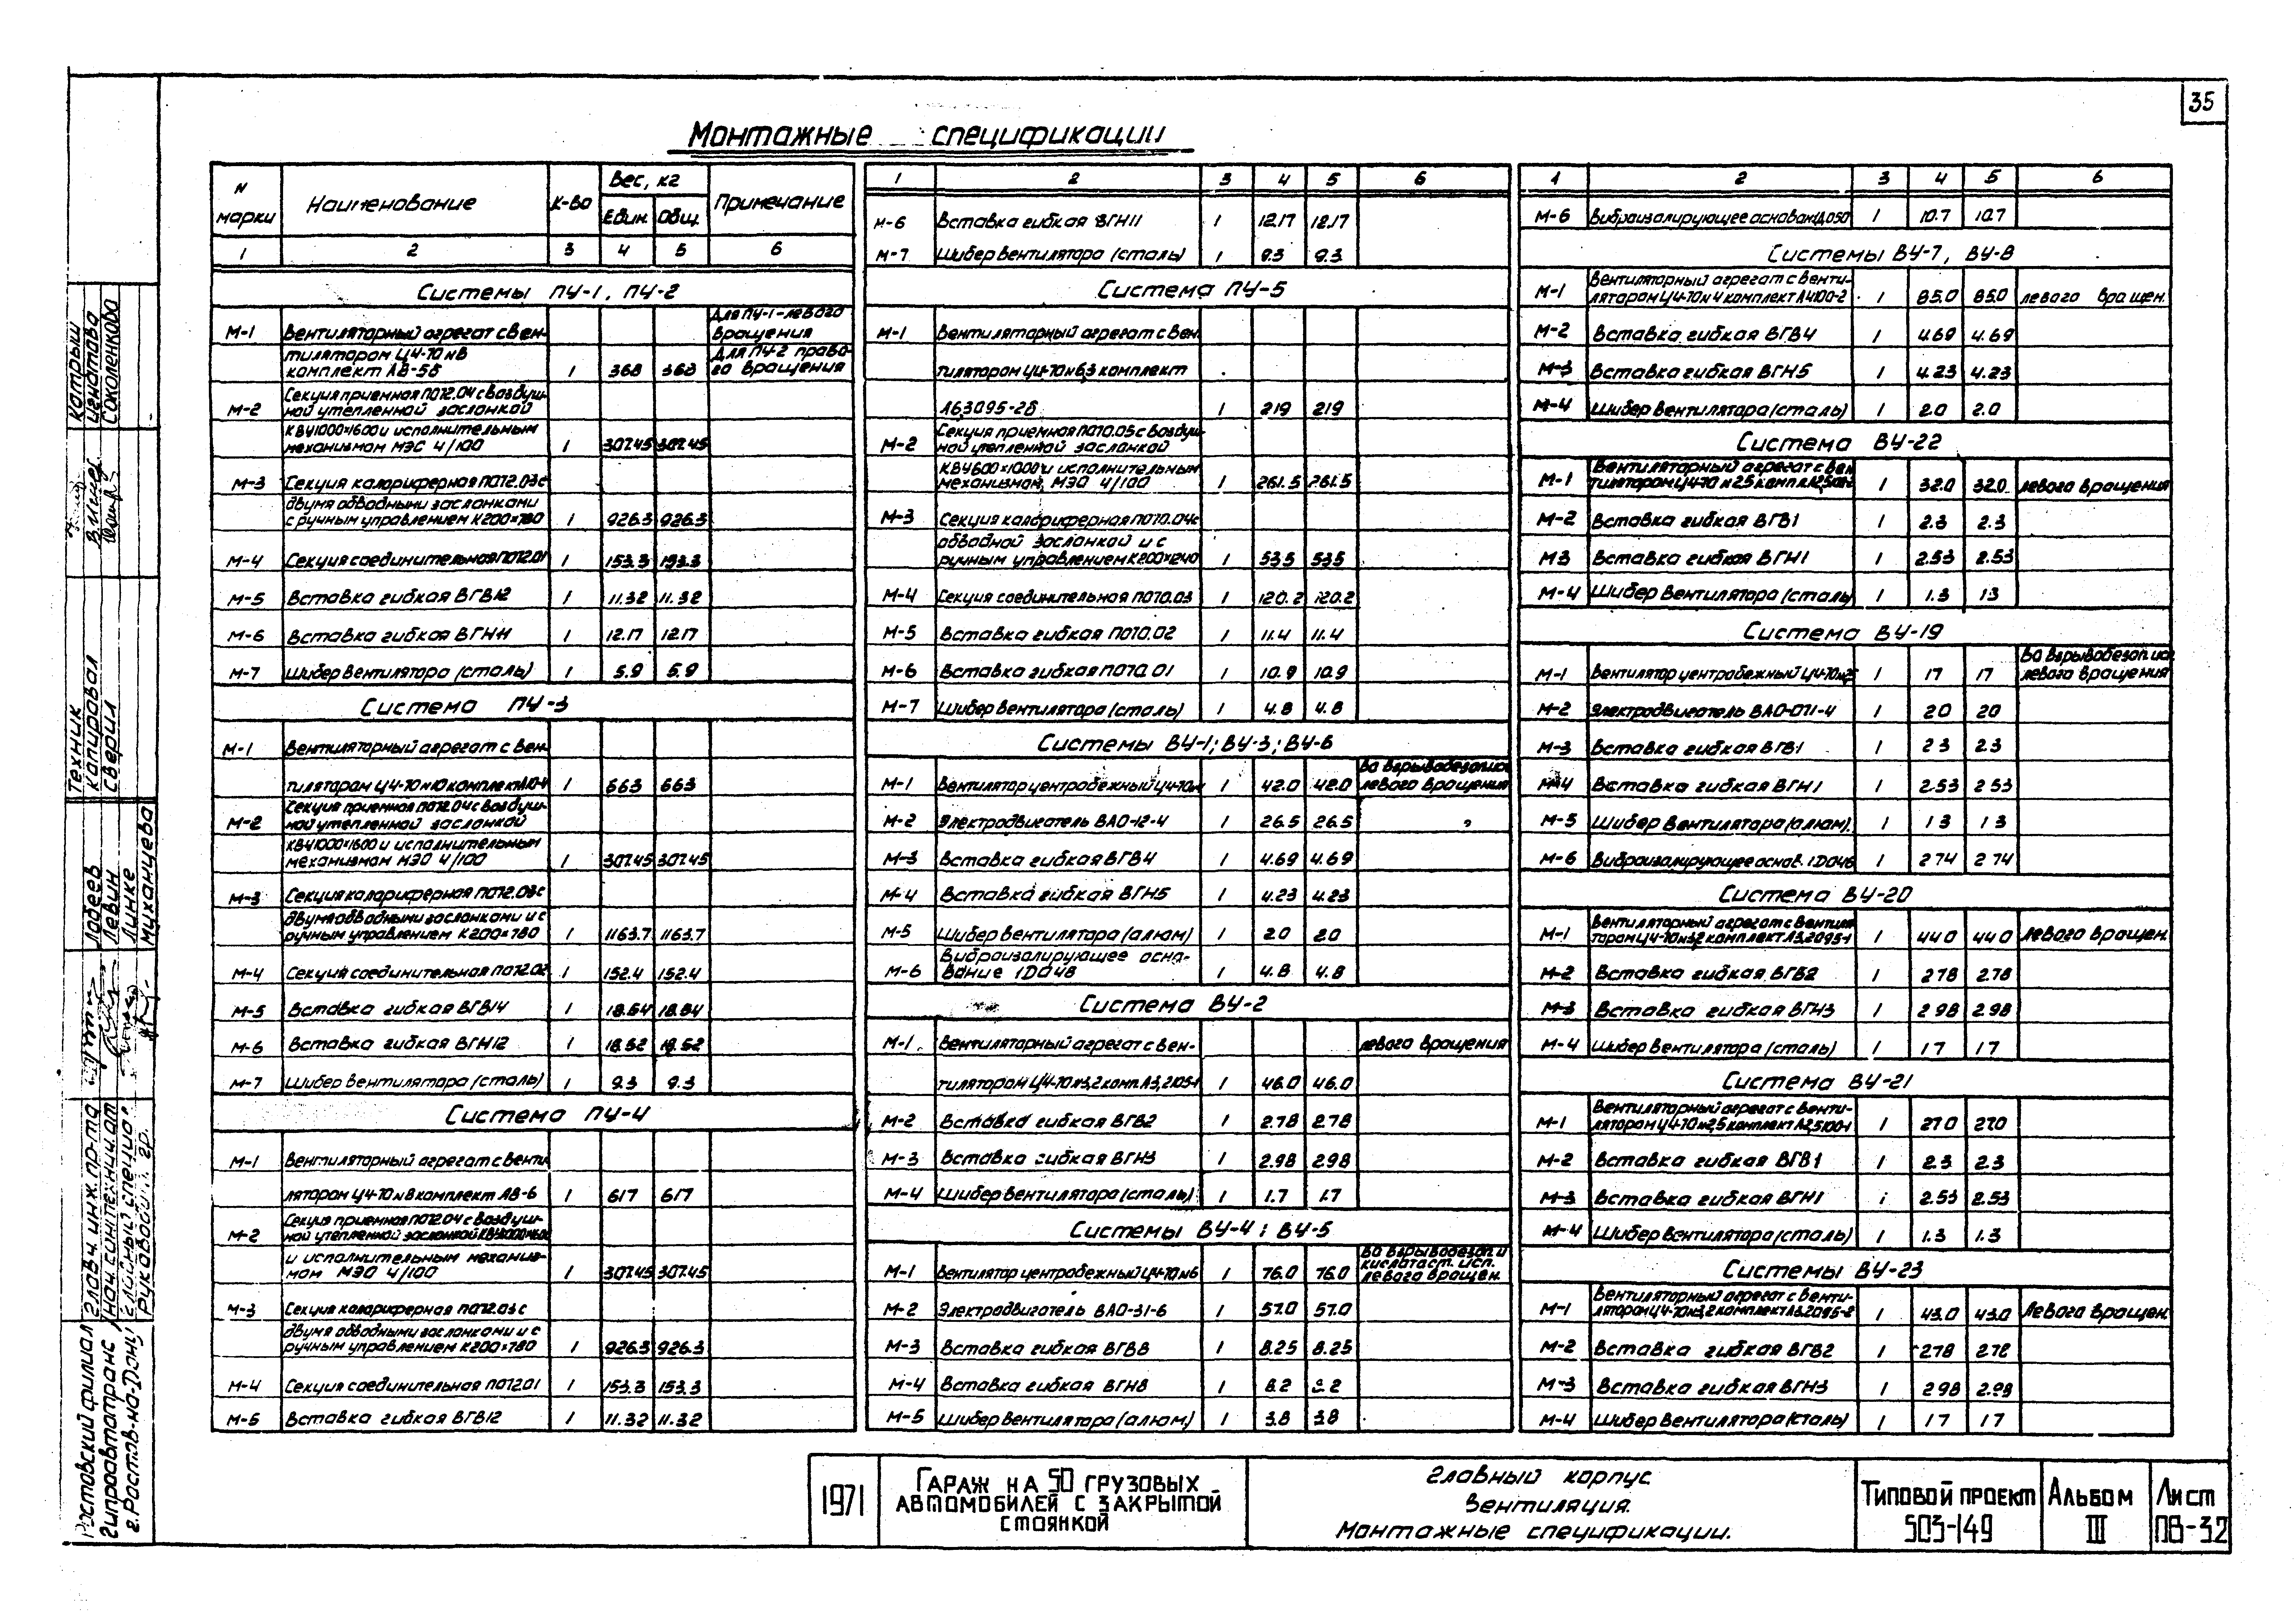 35
Монтажные спецификации
N марки | Наименование | К-во | Вес, кг | Примечание
Един. | Общ.
1 | 2 | 3 | 4 | 5 | 6
Системы ПУ-1, ПУ-2
М-1 Вентиляторный агрегат с вен- Для ПУ-1-левого вращения
тилятором Ц4-70 N8 комплект А8-5б 1 368 368 Для ПУ-2 право-го вращения
М-2 Секция приемная ПО12.04 с воздуш-
ной утепленной заслонкой
КВУ1000×1600 и исполнительным
механизмом МЭО 4/100 1 307.45 307.45
М-3 Секция калориферная ПО12.03 с
двумя обводными заслонками
с ручным управлением К200×780 1 926.3 926.3
М-4 Секция соединительная ПО12.01 1 153.3 153.3
М-5 Вставка гибкая ВГВ12 1 11.32 11.32
М-6 Вставка гибкая ВГН11 1 12.17 12.17
М-7 Шибер вентилятора (сталь) 1 5.9 5.9
Система ПУ-3
М-1 Вентиляторный агрегат с вен-
тилятором Ц4-70 N10 комплект 1 663 663
М-2 Секция приемная ПО12.04 с воздуш-
ной утепленной заслонкой
КВУ1000×1600 и исполнительным
механизмом МЭО 4/100 1 307.45 307.45
М-3 Секция калориферная ПО12.03 с
двумя обводными заслонками и с
ручным управлением К200×780 1 1163.7 1163.7
М-4 Секция соединительная ПО12.02 1 152.4 152.4
М-5 Вставка гибкая ВГВ14 1 18.64 18.64
М-6 Вставка гибкая ВГН12 1 18.52 18.52
М-7 Шибер вентилятора (сталь) 1 9.3 9.3
Система ПУ-4
М-1 Вентиляторный агрегат с венти-
лятором Ц4-70 N8 комплект А8-6 1 617 617
М-2 Секция приемная ПО12.04 с воздуш-
ной утепленной заслонкой КВУ1000×1600
и исполнительным механиз-
мом МЭО 4/100 1 307.45 307.45
М-3 Секция калориферная ПО12.03 с
двумя обводными заслонками и с
ручным управлением К200×780 1 926.3 926.3
М-4 Секция соединительная ПО12.01 1 153.3 153.3
М-5 Вставка гибкая ВГВ12 1 11.32 11.32
1 | 2 | 3 | 4 | 5 | 6
М-6 Вставка гибкая ВГН11 1 12.17 12.17
М-7 Шибер вентилятора (сталь) 1 9.3 9.3
Система ПУ-5
М-1 Вентиляторный агрегат с вен-
тилятором Ц4-70 N6,3 комплект
А6,3095-2б 1 219 219
М-2 Секция приемная ПО10.05 с воздуш-
ной утепленной заслонкой
КВУ600×1000 и исполнительным
механизмом МЭО 4/100 1 261.5 261.5
М-3 Секция калориферная ПО10.04 с
обводной заслонкой и с
ручным управлением К200×1240 1 535 535
М-4 Секция соединительная ПО10.03 1 120.2 120.2
М-5 Вставка гибкая ПО10.02 1 11.4 11.4
М-6 Вставка гибкая ПО10.01 1 10.9 10.9
М-7 Шибер вентилятора (сталь) 1 4.8 4.8
Системы ВУ-1; ВУ-3; ВУ-6
М-1 Вентилятор центробежный Ц4-70 1 42.0 42.0 Во взрывобезоп. исп. левого вращения
М-2 Электродвигатель ВАО-12-4 1 26.5 26.5
М-3 Вставка гибкая ВГВ4 1 4.69 4.69
М-4 Вставка гибкая ВГН5 1 4.23 4.23
М-5 Шибер вентилятора (алюм) 1 20 20
М-6 Виброизолирующее осно-
вание 1D048 1 4.8 4.8
Система ВУ-2
М-1 Вентиляторный агрегат с вен- левого вращения
тилятором Ц4-70 N3,2 комп. А3,2105-1 1 46.0 46.0
М-2 Вставка гибкая ВГВ2 1 2.78 2.78
М-3 Вставка гибкая ВГН3 1 2.98 2.98
М-4 Шибер вентилятора (сталь) 1 1.7 1.7
Системы ВУ-4; ВУ-5
М-1 Вентилятор центробежный Ц4-70 N6 1 76.0 76.0 Во взрывобезоп. и кислотаст. исп. левого вращен.
М-2 Электродвигатель ВАО-31-6 1 57.0 57.0
М-3 Вставка гибкая ВГВ8 1 8.25 8.25
М-4 Вставка гибкая ВГН8 1 8.2 8.2
М-5 Шибер вентилятора (алюм) 1 3.8 3.8
1 | 2 | 3 | 4 | 5 | 6
М-6 Виброизолирующее основан. 1D050 1 10.7 10.7
Системы ВУ-7, ВУ-8
М-1 Вентиляторный агрегат с венти-
лятором Ц4-70 N4 комплект А4100-2 1 85.0 85.0 левого вращен.
М-2 Вставка гибкая ВГВ4 1 4.69 4.69
М-3 Вставка гибкая ВГН5 1 4.23 4.23
М-4 Шибер вентилятора (сталь) 1 2.0 2.0
Система ВУ-22
М-1 Вентиляторный агрегат с вен-
тилятором Ц4-70 N2.5 компл. 1 32.0 32.0 левого вращения
М-2 Вставка гибкая ВГВ1 1 2.3 2.3
М3 Вставка гибкая ВГН1 1 2.53 2.53
М-4 Шибер вентилятора (сталь) 1 1.3 13
Система ВУ-19
М-1 Вентилятор центробежный Ц4-70 1 17 17 Во взрывобезоп. исп. левого вращения
М-2 Электродвигатель ВАО-071-4 1 20 20
М-3 Вставка гибкая ВГВ1 1 23 2.3
М-4 Вставка гибкая ВГН1 1 2.53 2 53
М-5 Шибер вентилятора (алюм). 1 1 3 1 3
М-6 Виброизолирующее основ. 1D046 1 2 74 2 74
Система ВУ-20
М-1 Вентиляторный агрегат с вентиля-
тором Ц4-70 N3,2 комплект А3,2095-1 1 44.0 44.0 левого вращен.
М-2 Вставка гибкая ВГВ2 1 2 78 2.78
М-3 Вставка гибкая ВГН3 1 2 98 2.98
М-4 Шибер вентилятора (сталь) 1 1 7 1 7
Система ВУ-21
М-1 Вентиляторный агрегат с венти-
лятором Ц4-70 N2,5 комплект А2,5100-1 1 27.0 27.0
М-2 Вставка гибкая ВГВ1 1 2.3 2.3
М-3 Вставка гибкая ВГН1 1 2.53 2.53
М-4 Шибер вентилятора (сталь) 1 1.3 1.3
Системы ВУ-23
М-1 Вентиляторный агрегат с венти-
лятором Ц4-70 N3,2 комплект А3.2095-2 1 43.0 43.0 Левого вращен.
М-2 Вставка гибкая ВГВ2 1 278 2.78
М-3 Вставка гибкая ВГН3 1 2 98 2.98
М-4 Шибер вентилятора (сталь) 1 1 7 1 7
1971
Гараж на 50 грузовых
автомобилей с закрытой
стоянкой
Главный корпус
Вентиляция.
Монтажные спецификации.
Типовой проект
503-149
Альбом
III
Лист
ОВ-32
Ростовский филиал
Гипроавтотранс
г.Ростов-на-Дону
Главн. инж. пр-та
Нач. сантехнич. от
Главный специал.
Руководит. гр.
Лобеев
Левин
Линке
Миханцева
Техник
Копировал
Сверил
Катрыш
Игнатова
Соколенкова